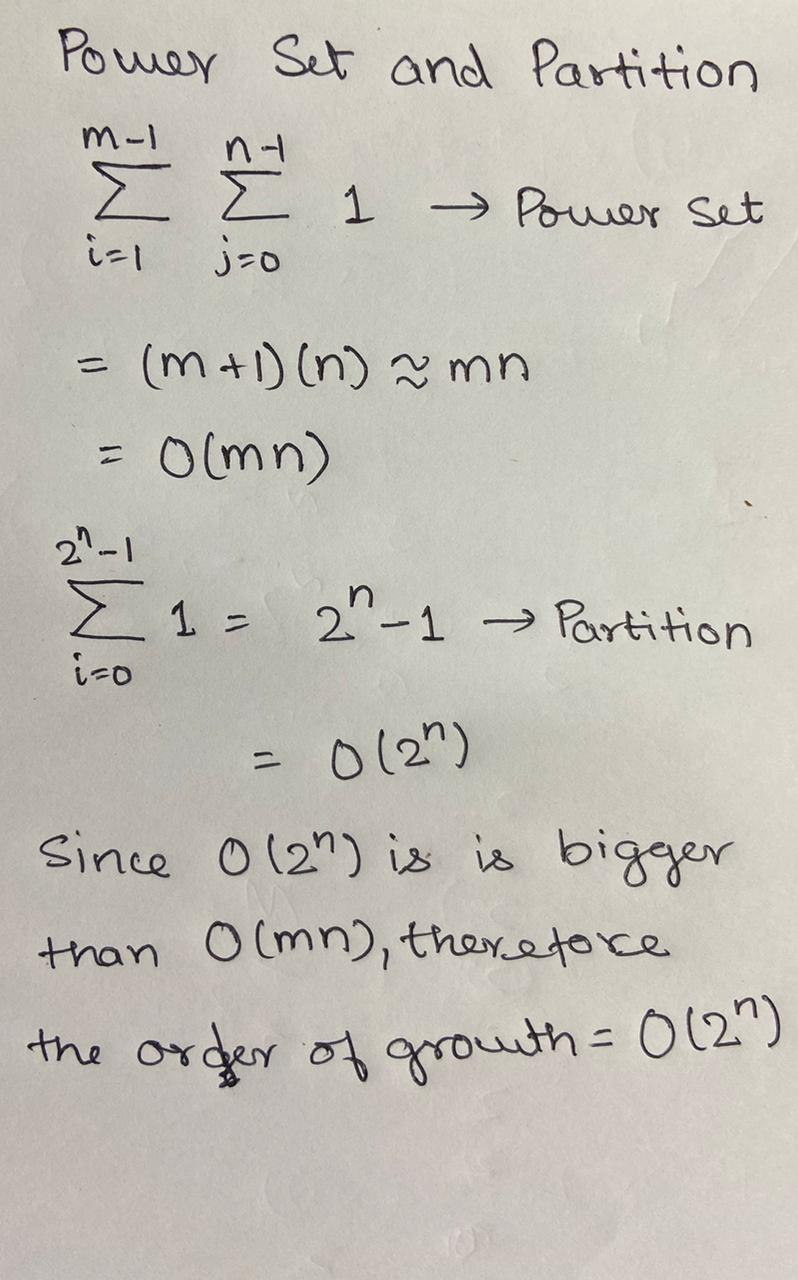 Power Set and Partition
m-1 n-1
Σ Σ 1 → Power Set
i=1 j=0
= (m+1)(n) ≈ mn
= O(mn)
2ⁿ-1
Σ 1 = 2ⁿ-1 → Partition
i=0
= O(2ⁿ)
Since O(2ⁿ) is is bigger
than O(mn), therefore
the order of growth = O(2ⁿ)